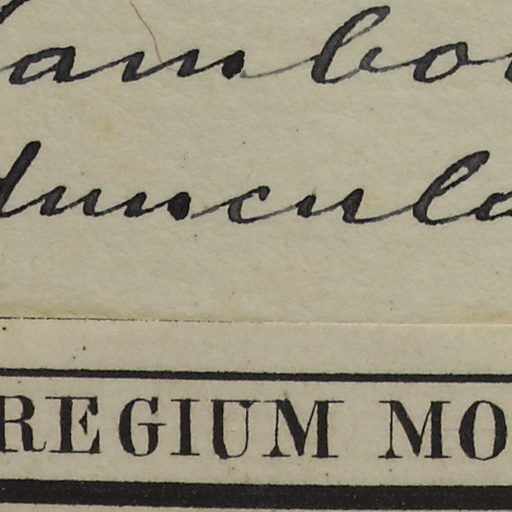 ambo
duncula
REGIUM MO